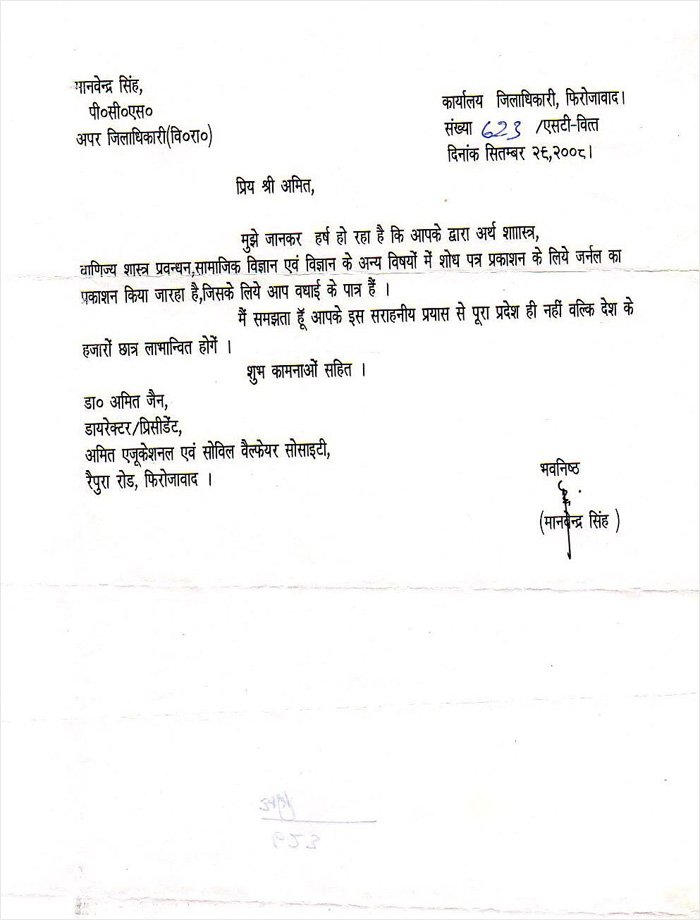 मानवेन्द्र सिंह,
पी०सी०एस०
अपर जिलाधिकारी(वि०रा०)
कार्यालय जिलाधिकारी, फिरोजावाद।
संख्या 623 /एसटी-वित्त
दिनांक सितम्बर २६,२००८।
प्रिय श्री अमित,
मुझे जानकर हर्ष हो रहा है कि आपके द्वारा अर्थ शाास्त्र,
वाणिज्य शास्त्र प्रवन्धन,सामाजिक विज्ञान एवं विज्ञान के अन्य विषयों में शोध पत्र प्रकाशन के लिये जर्नल का
प्रकाशन किया जारहा है,जिसके लिये आप वधाई के पात्र हैं ।
मैं समझता हूॅ आपके इस सराहनीय प्रयास से पूरा प्रदेश ही नहीं वल्कि देश के
हजारों छात्र लाभान्वित होगें ।
शुभ कामनाओं सहित ।
डा० अमित जैन,
डायरेक्टर/प्रिसीडेंट,
अमित एजूकेशनल एवं सोविल वैल्फेयर सोसाइटी,
रैपुरा रोड, फिरोजावाद ।
भवनिष्ठ
(मानवेन्द्र सिंह )